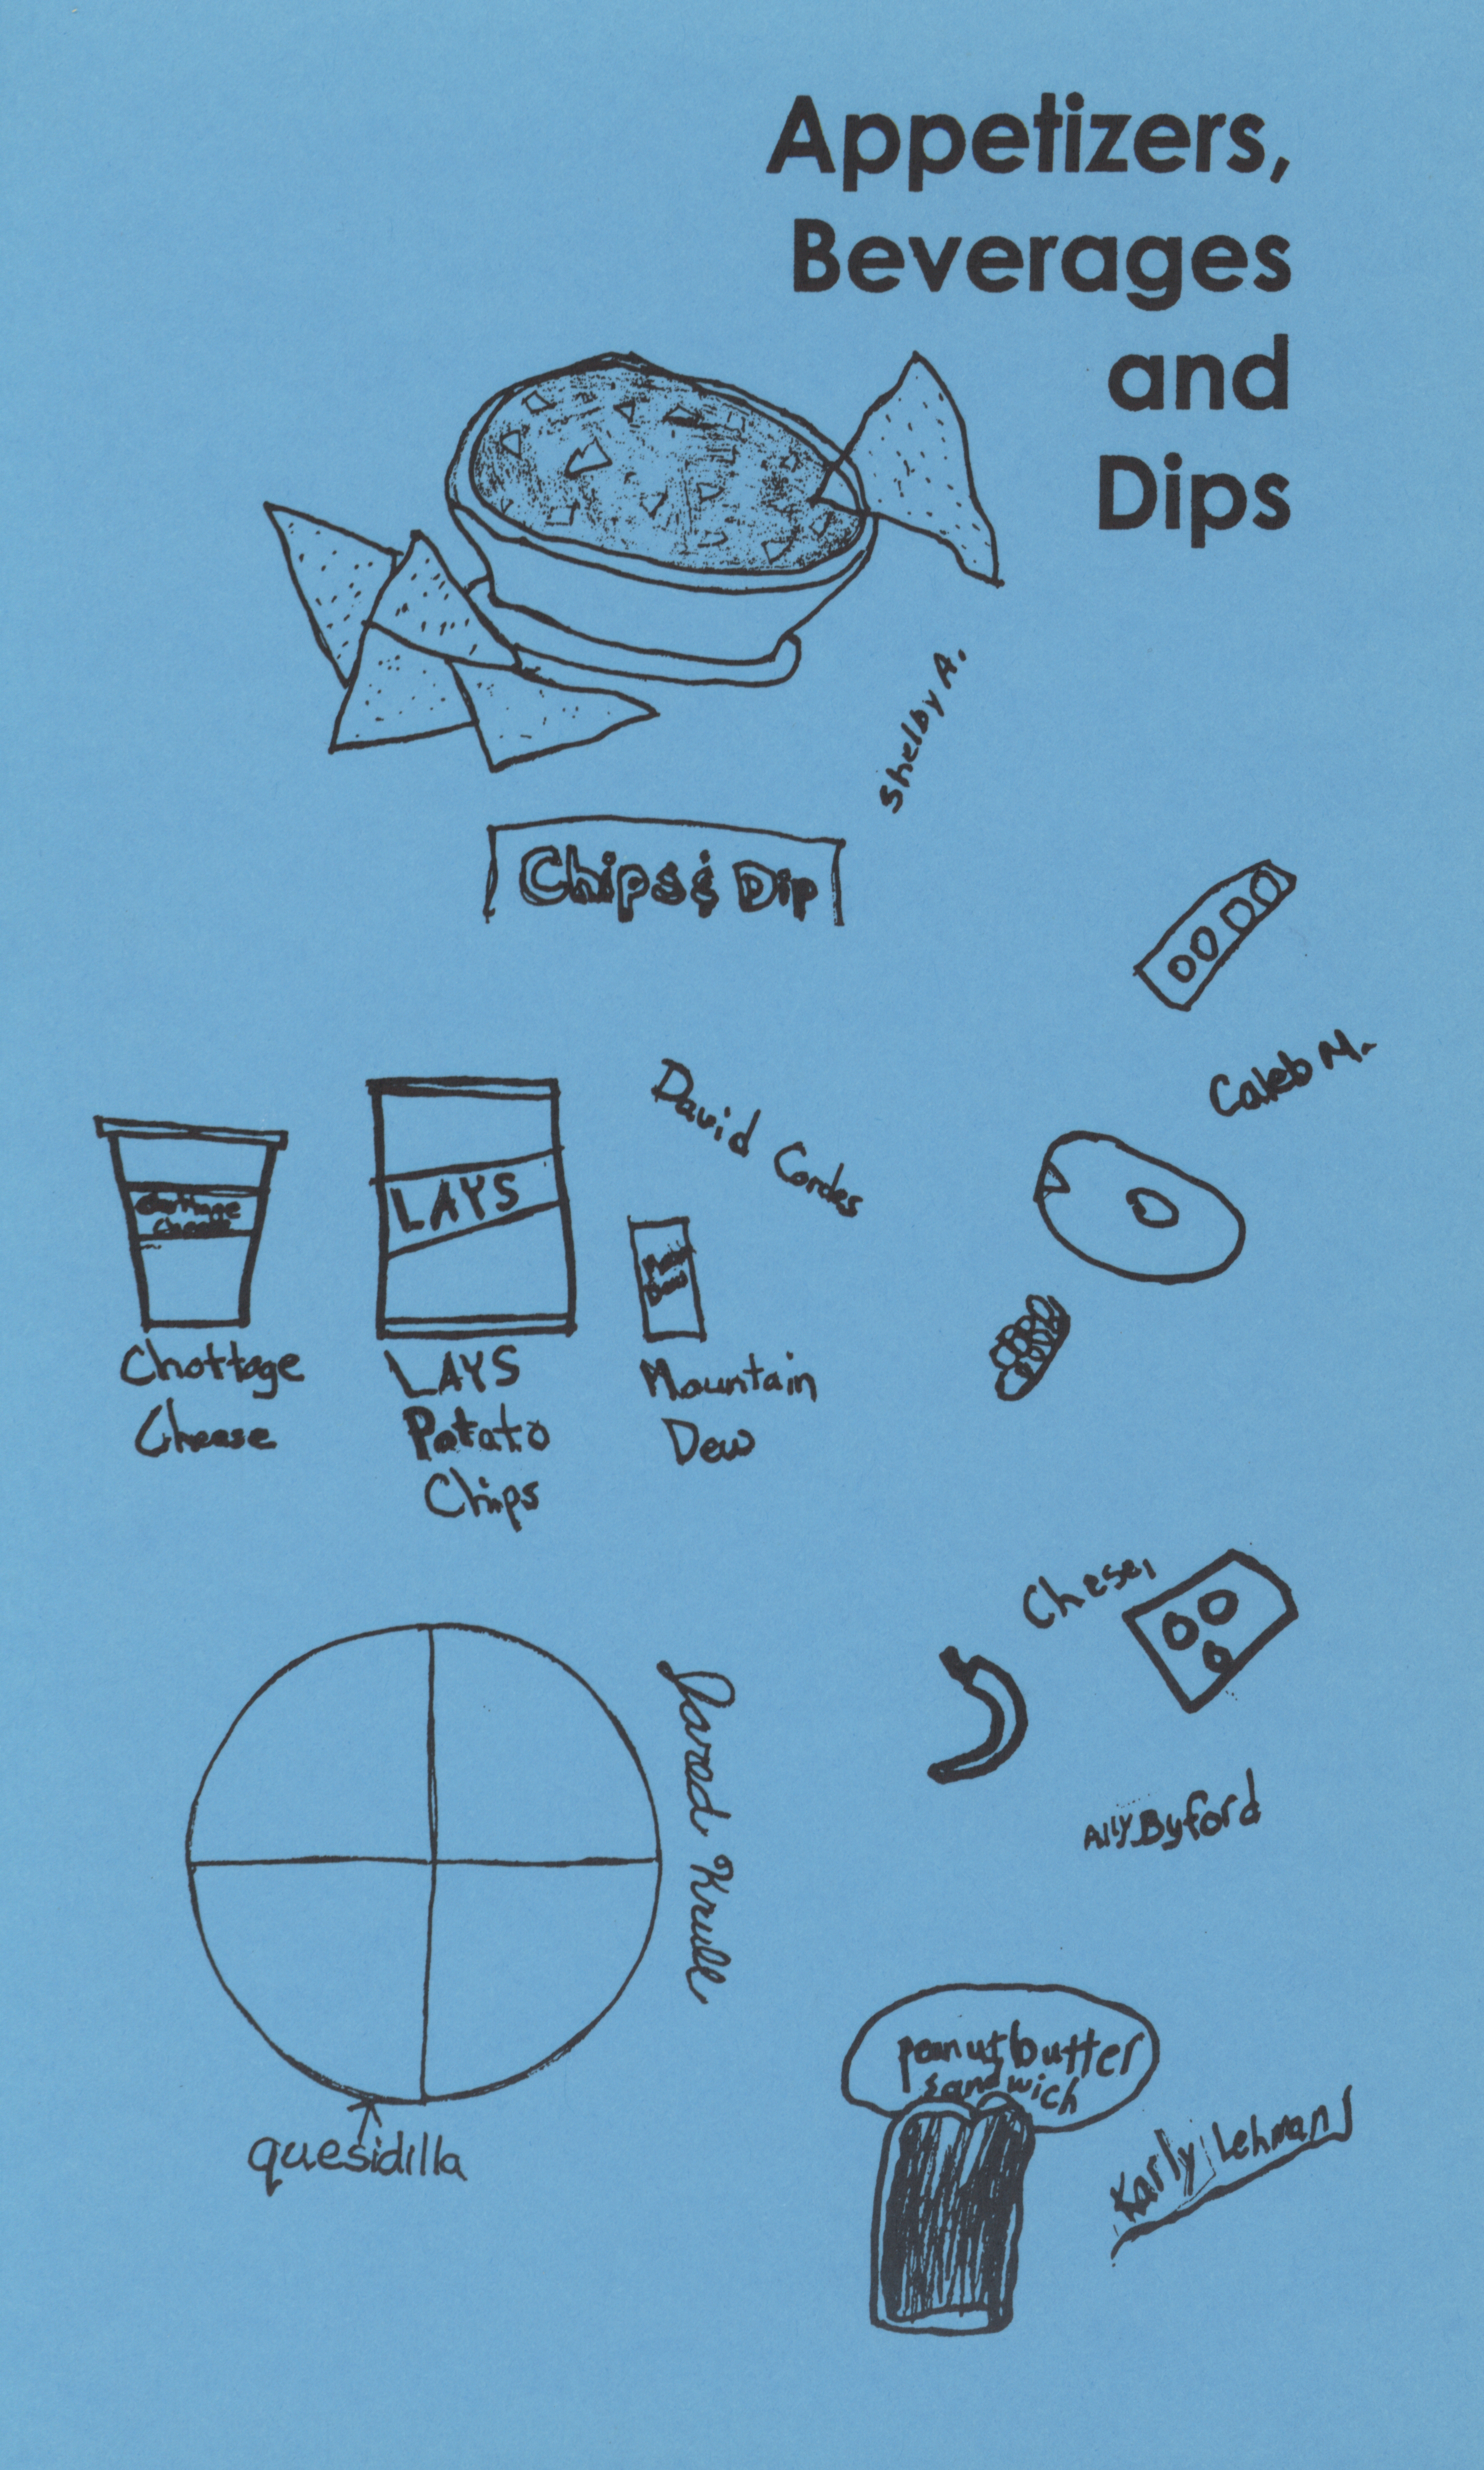 Appetizers,
Beverages
and
Dips
Shelby A.
Chips & Dip
Caleb M.
David Cordes
Chottage
Cheese
LAYS
Chottage
Cheese
LAYS
Patato
Chips
Dew
Mountain
Dew
Chese,
Jarod Krull
Ally Byford
quesidilla
peanut butter
sandwich
Karly Lehman